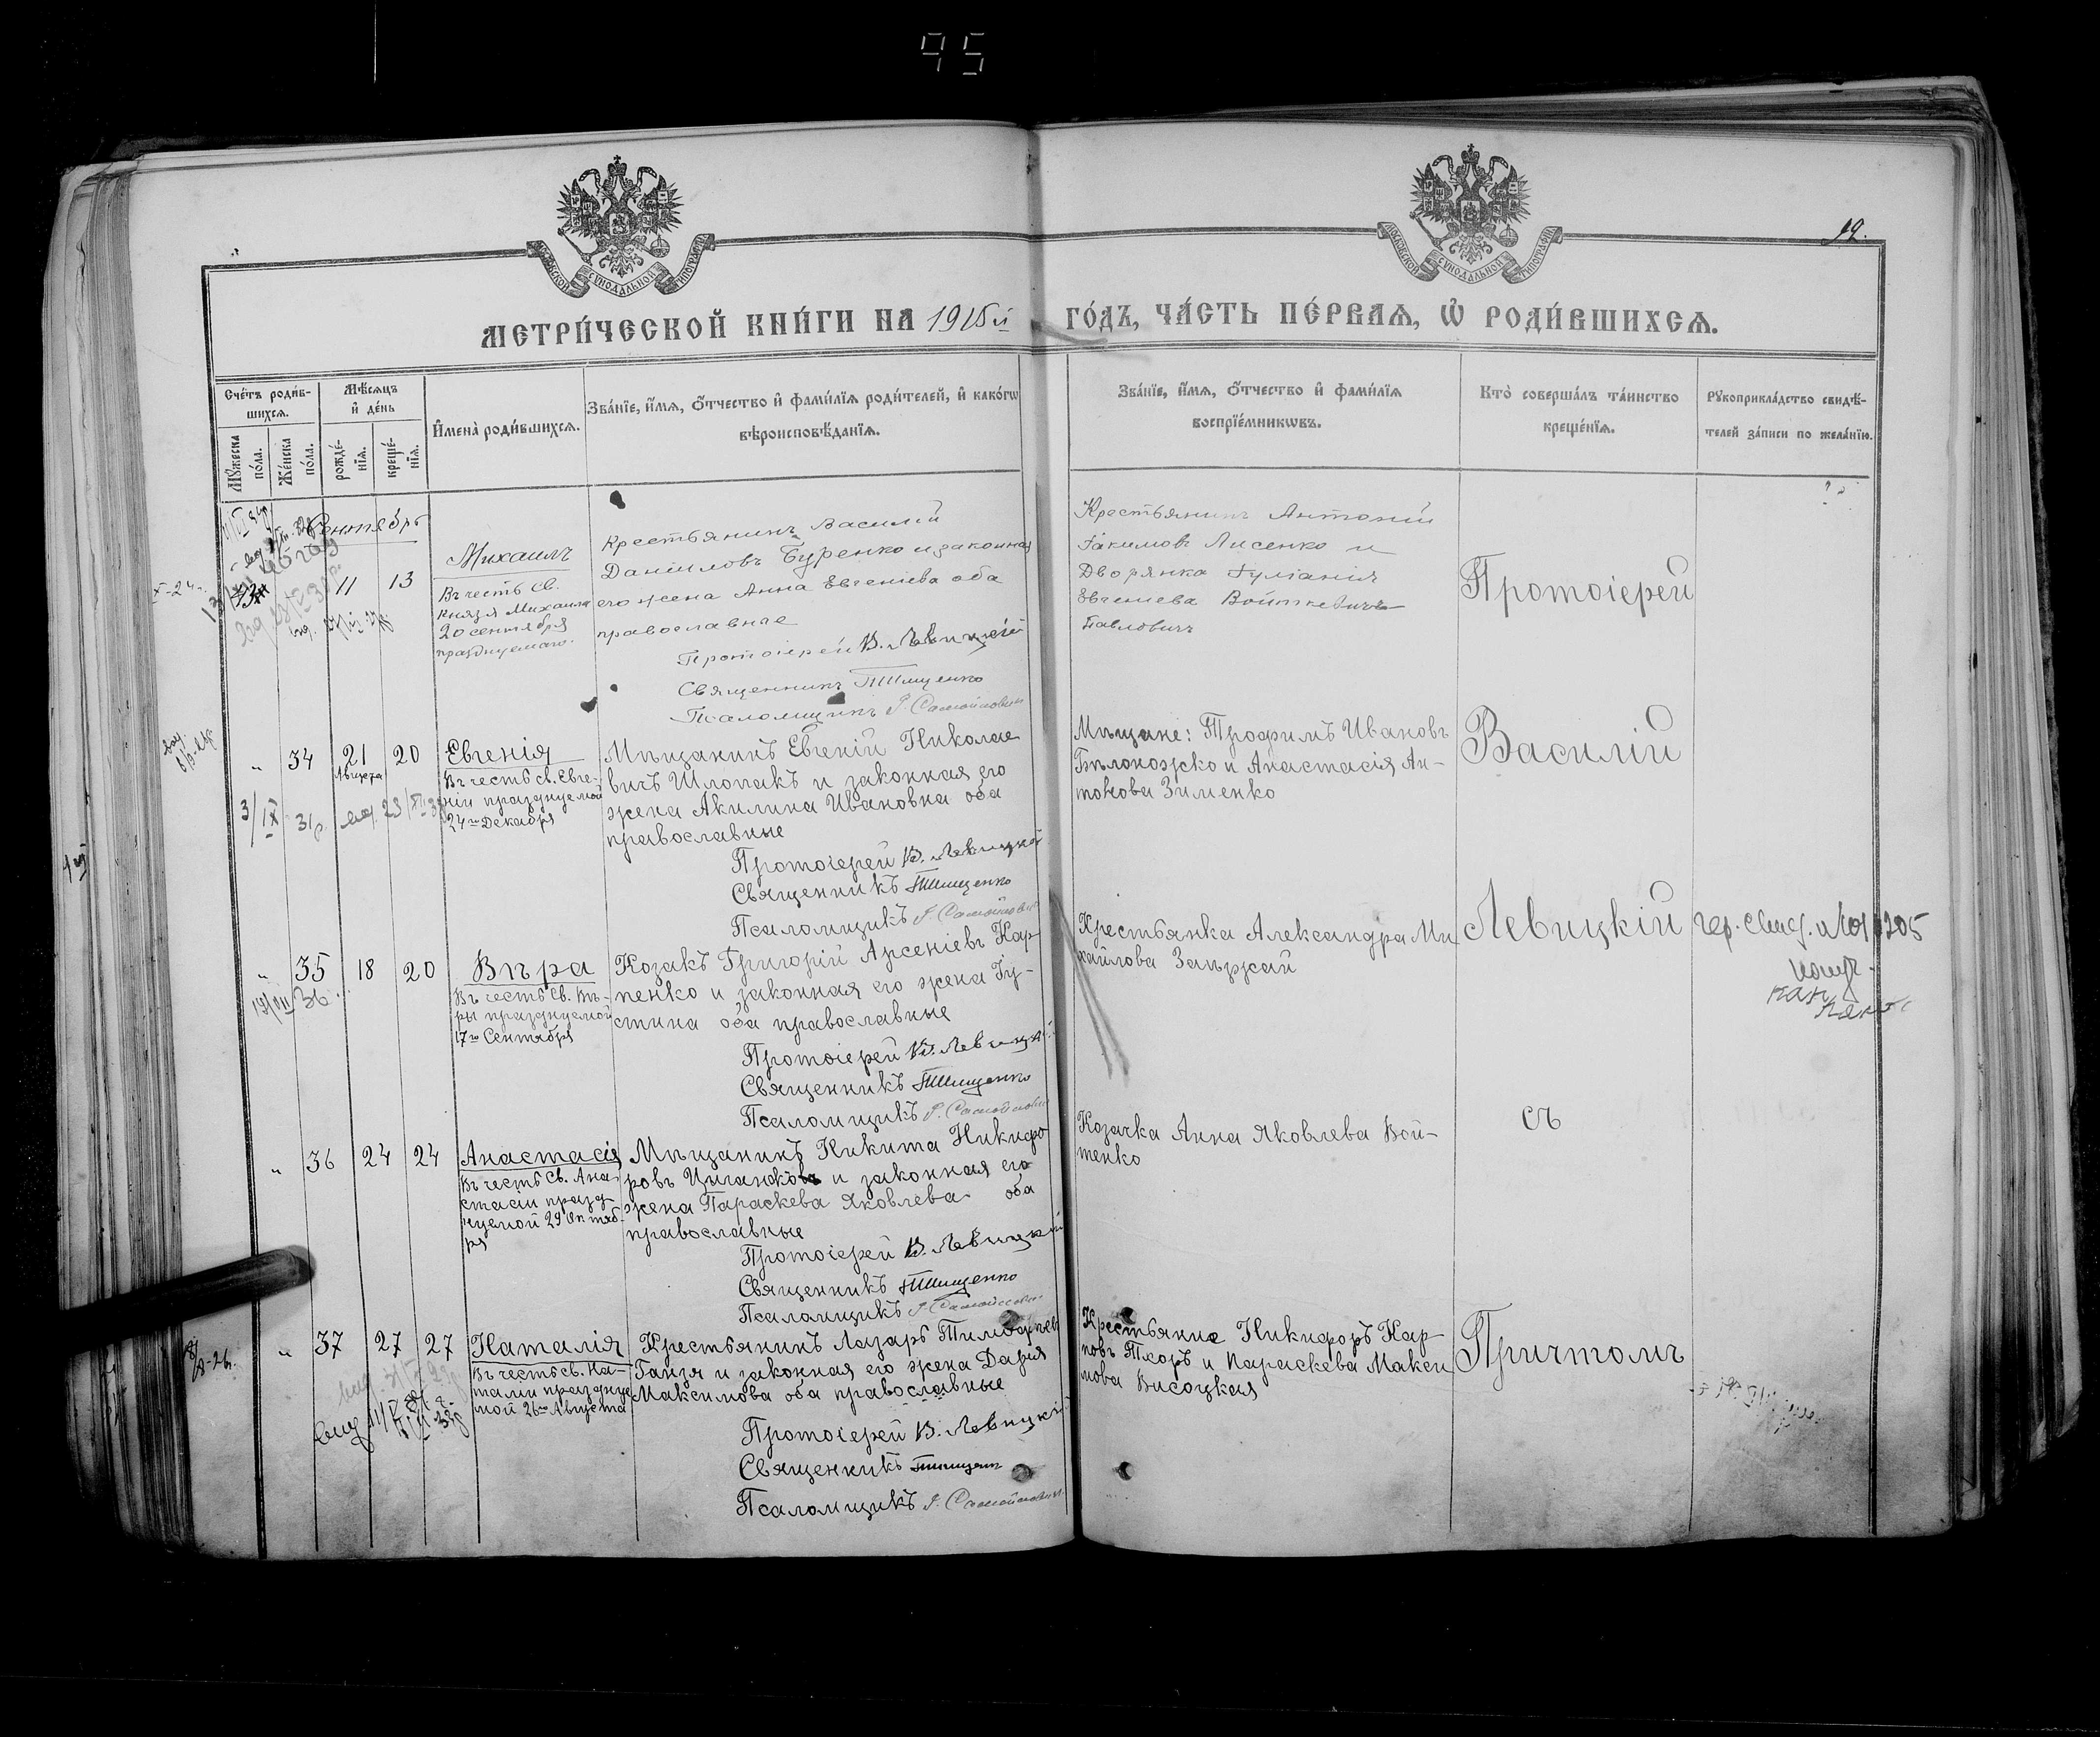 95
МОСКОВСКОЙ СѴНОДАЛЬНОЙ ТИПОГРАФІИ
МОСКОВСКОЙ СѴНОДАЛЬНОЙ ТИПОГРАФІИ
МЕТРИ́ЧЕСКОЙ КНИ́ГИ НА 1915й ГО́ДЪ, ЧА́СТЬ ПЕ́РВАѦ, Ѡ҆ РОДИ́ВШИХСѦ.
Сче́тъ роди́в-
шихсѧ.
Мѣ́сѧцъ
и҆ де́нь
Мꙋ́жеска
по́ла.
Же́нска
по́ла.
рожде́-
нїѧ.
креще́-
нїѧ.
И҆мена̀ роди́вшихсѧ.
Зва́нїе, и҆́мѧ, ѻ҆́тчество и҆ фами́лїѧ роди́телей, и҆ како́гѡ
вѣроисповѣ́данїѧ.
Зва́нїе, и҆́мѧ, ѻ҆́тчество и҆ фами́лїѧ
воспрїе́мникѡвъ.
Кто̀ соверша́лъ та́инство
креще́нїѧ.
Рꙋкоприкла́дство свидѣ́-
телей за́писи по жела́нїю.
Сентябрь
11 13
Михаилъ
Въ честь Св.
Князя Михаила
20 сентября
празднуемаго.
Крестьянинъ Василій
Даніиловъ Буренко и законная
его жена Анна Евгеніева оба
православные
Протоіерей В. Левицкій
Священникъ Тищенко
Псаломщикъ Самойлович
Крестьянинъ Антоній
Іакимовъ Лисенко и
Дворянка Іуліанія
Евгениева Войткевичъ
Павловичъ
Протоіерей
" 34 21 Августа 20
Евгенія
Въ честь св. Евге-
ніи празднуемой
24го Декабря
Мѣщанинъ Евгеній Николае
вичъ Шлопакъ и законная его
жена Акилина Ивановна оба
православные
Протоіерей В. Левицкій
Священникъ Тищенко
Псаломщикъ Самойлович
Мѣщане: Трофимъ Ивановъ
Бѣлоножко и Анастасія Ан-
тонова Зименко
Василій
" 35 18 20
Вѣра
Въ честь Св. Вѣ-
ры празднуемой
17го Сентября
Козакъ Григорій Арсеніевъ Кар
пенко и законная его жена Іу-
стина оба православные
Протоіерей В. Левицкій
Священникъ Тищенко
Псаломщикъ Самойлович
Крестьянка Александра Ми
хайлова Заѣржай
Левицкій
" 36 24 24
Анастасія
Въ честь Св. Ана
стасіи празд
нуемой 29 Октяб-
ря
Мѣщанинъ Никита Никифо
ровъ Циганковъ и законная его
жена Параскева Яковлева оба
православные
Протоіерей В. Левицкій
Священникъ Тищенко
Псаломщикъ Самойлович
Козачка Анна Яковлева Вой-
тенко
съ
" 37 27 27
Наталія
Въ честь св. На-
таліи праздуе
мой 26го Августа
Крестьянинъ Лазарь Тимофѣев
Ганзя и законная его жена Дарія
Максимова оба православные
Протоіерей В. Левицкій
Священникъ Тищенко
Псаломщикъ Самойлович
Крестьяне Никифоръ Кар
повъ и Параскева Макси
мова Висоцкая
Причтомъ